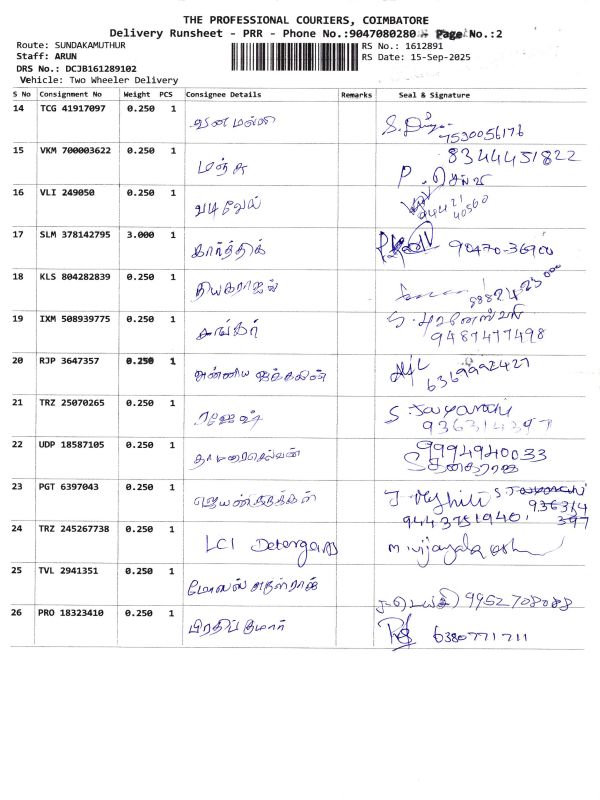 THE PROFESSIONAL COURIERS, COIMBATORE
Delivery Runsheet - PRR - Phone No.:9047080280 Page No.:2
Route: SUNDAKAMUTHUR
RS No.: 1612891
Staff: ARUN
RS Date: 15-Sep-2025
DRS No.: DCJB161289102
Vehicle: Two Wheeler Delivery
S No Consignment No Weight PCS Consignee Details Remarks Seal & Signature
14 TCG 41917097 0.250 1 வனமல்லி
7530056176
15 VKM 700003622 0.250 1 மஞ்சு 8344451822
P. செல்வி
16 VLI 249050 0.250 1 வடிவேல் 94421
40560
17 SLM 378142795 3.000 1 கார்த்திக் 90470-36900
18 KLS 804282839 0.250 1 தியாகராஜன்
19 IXM 508939775 0.250 1 சங்கர் S. புவனேஸ்வரி
9487477498
20 RJP 3647357 0.250 1
6369992427
21 TRZ 25070265 0.250 1 S. Jayanthi
936314397
22 UDP 18587105 0.250 1 தாமரைசெல்வன் 9994940033
23 PGT 6397043 0.250 1 J. Meghili S Jayanthi
9443751940 936314
397
24 TRZ 245267738 0.250 1 LCI Detergents
25 TVL 2941351 0.250 1 மோஸஸ் அருள்ராஜ்
9952708088
26 PRO 18323410 0.250 1 பிரதிப்குமார் 6380771711